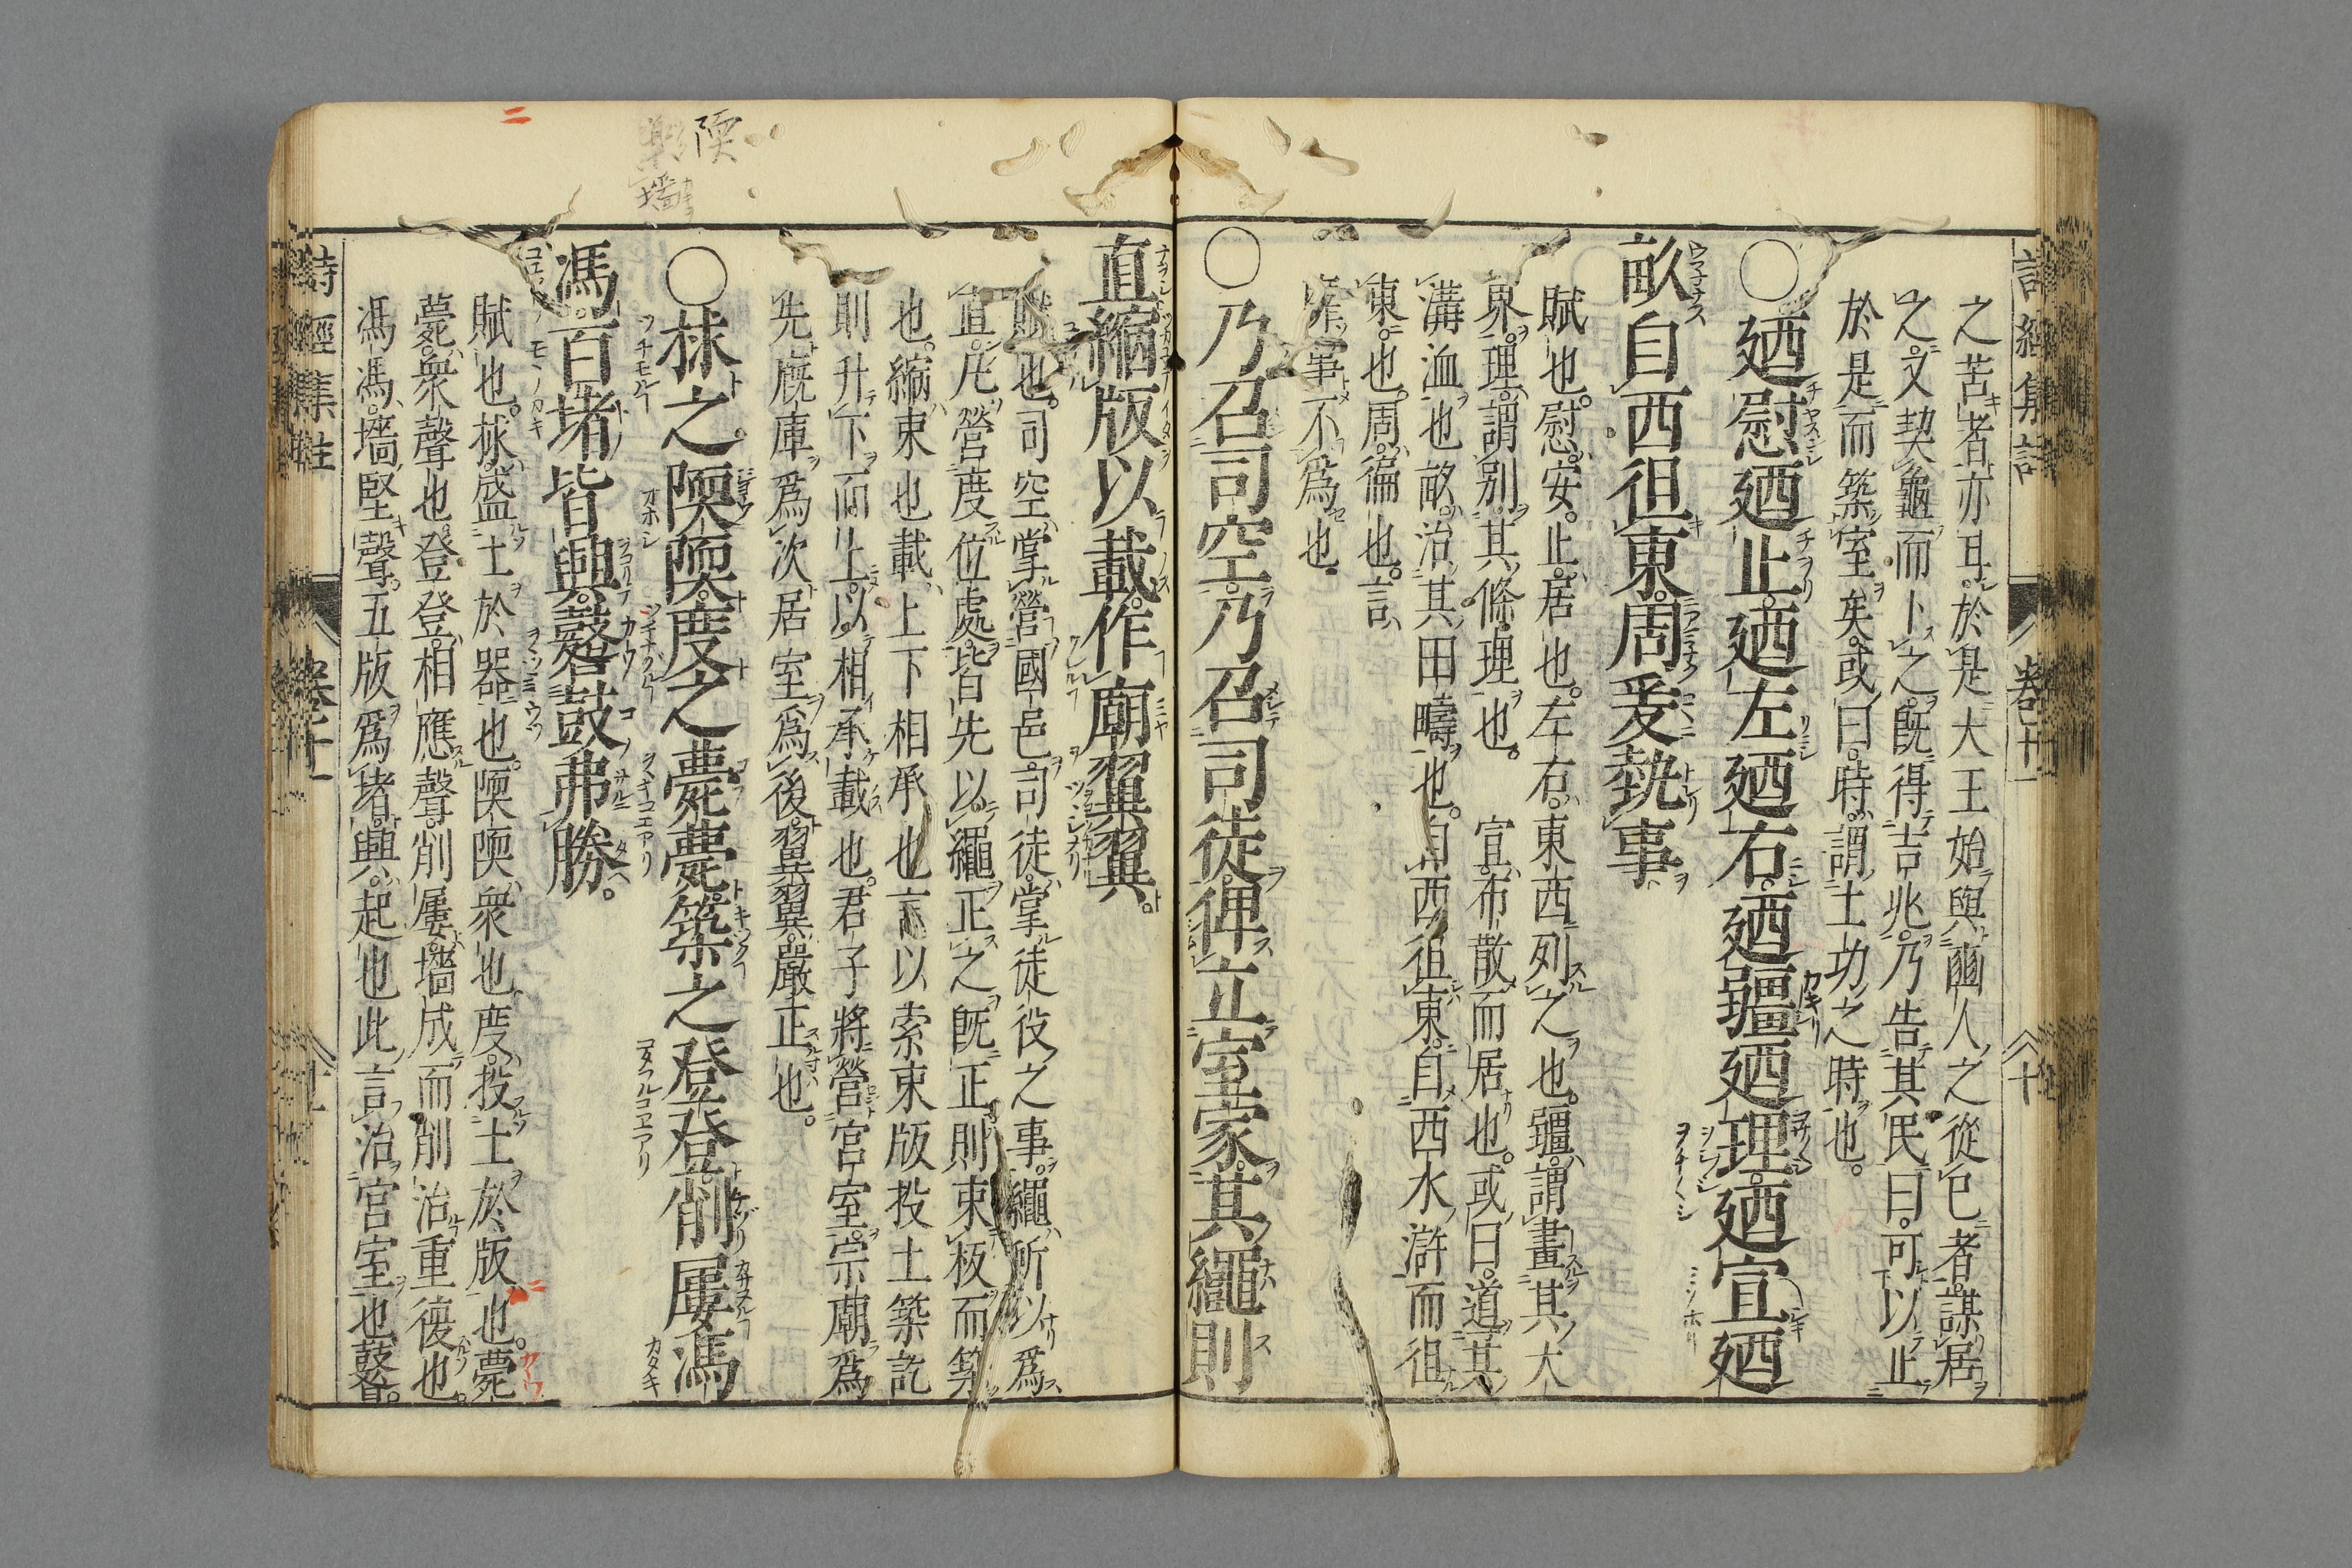 詩經集註 卷十一 十
之苦者亦耳於是大王始與豳人之從已者謀居
之又契龜而卜之既得吉兆乃告其民曰可以止
於是而築室矣或曰時謂土功之時也
○廼慰廼止廼左廼右廼疆廼理廼宣廼
畝自西徂東周爰執事
賦也慰安止居也左右東西列之也疆謂畫其大
界理謂別其條理也宣布散而居也或曰道其
溝洫也畝治其田疇也自西徂東自西水滸而徂
東也周徧也言
事不爲也
○乃召司空乃召司徒俾立室家其繩則
直縮版以載作廟翼翼
賦也司空掌營國邑司徒掌徒役之事繩所以爲
直凡營度位處皆先以繩正之既正則束板而築
也縮束也載上下相承也言以索束版投土築訖
則升下而上以相承載也君子將營宮室宗廟爲
先廐庫爲次居室爲後翼翼嚴正也
○捄之陾陾度之薨薨築之登登削屢馮
馮百堵皆興鼛鼓弗勝
賦也捄盛土於器也陾陾衆也度投土於版也薨
薨衆聲也登登相應聲削屢墻成而削治重復也
馮馮墻堅聲五版爲堵興起也此言治宮室也鼛
詩經集註 卷十一
陾
墻